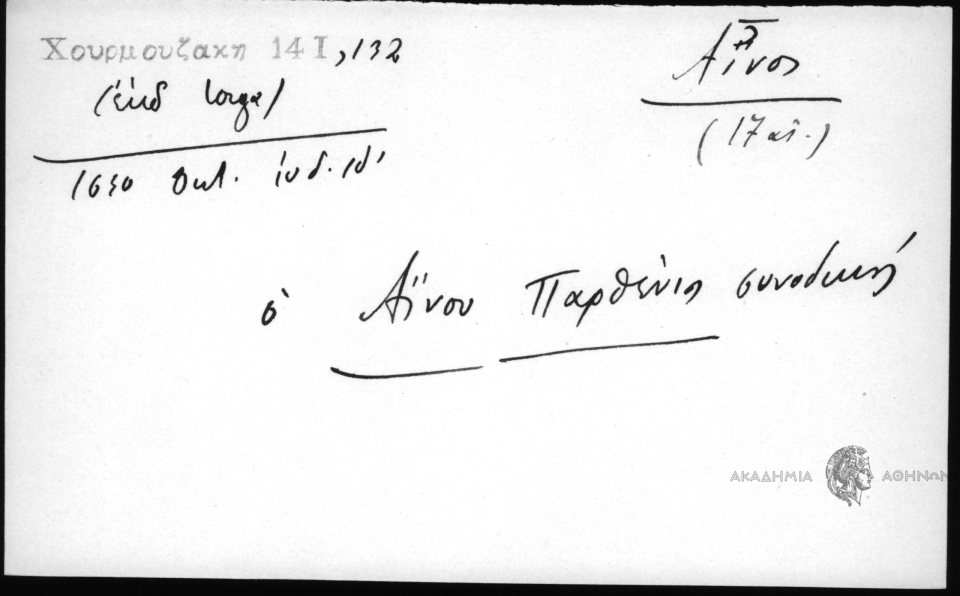 Χουρμουζακη 14 Ι, 132
(ἐκδ Iorga)
1630 Οκτ. ἰνδ. ιδ'
Αἴνος
(17 αἰ.)
ὁ Αἴνου Παρθένιος συνοδική
ΑΚΑΔΗΜΙΑ ΑΘΗΝΩΝ